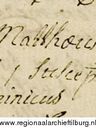 Matthæus
j suscep
minicus
www.regionaalarchieftilburg.nl